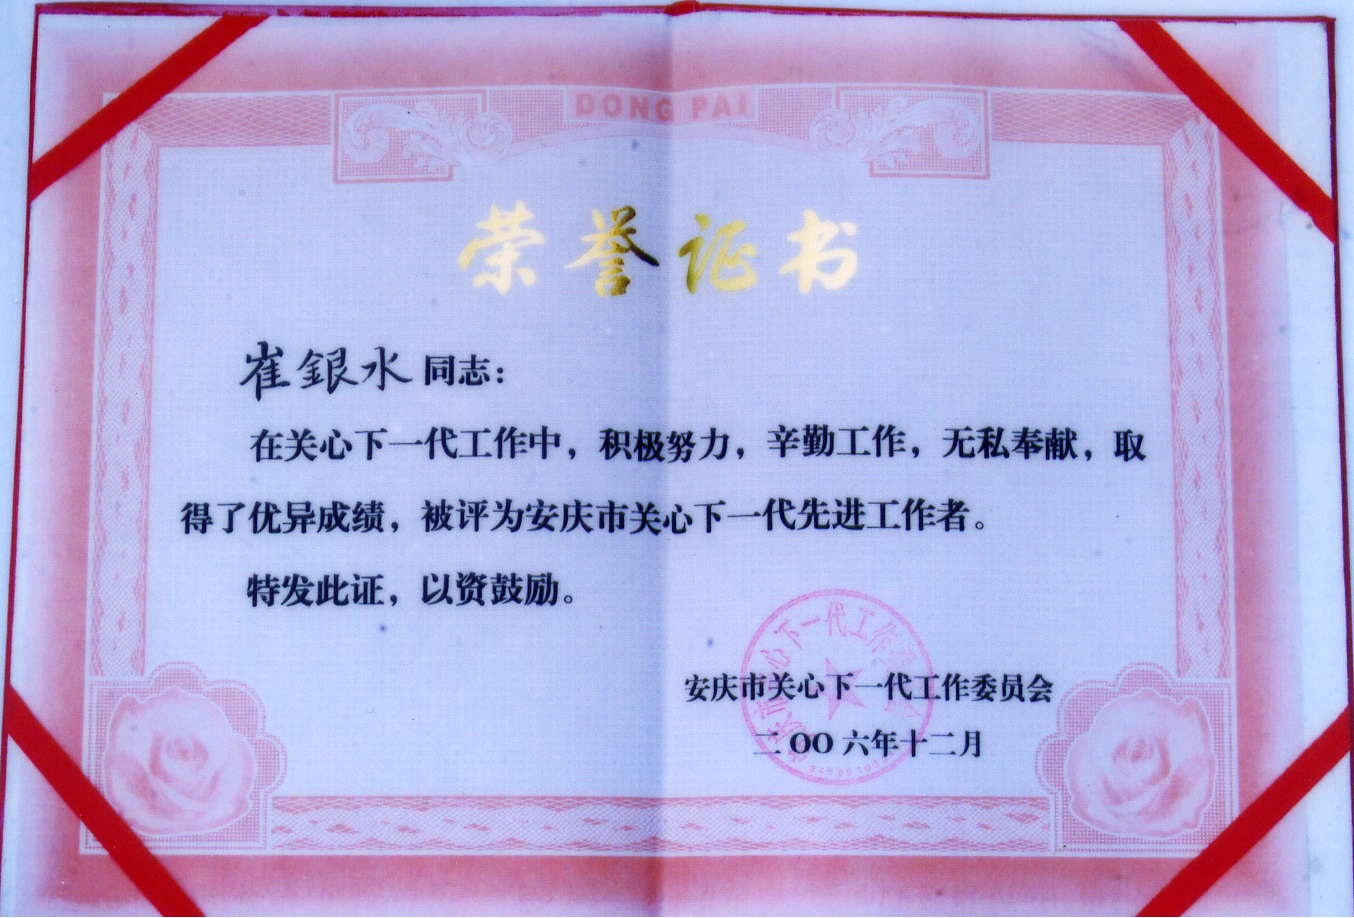 DONG PAI
荣誉证书
崔銀水同志：
在关心下一代工作中，积极努力，辛勤工作，无私奉献，取
得了优异成绩，被评为安庆市关心下一代先进工作者。
特发此证，以资鼓励。
安庆市关心下一代工作委员会
二OO六年十二月